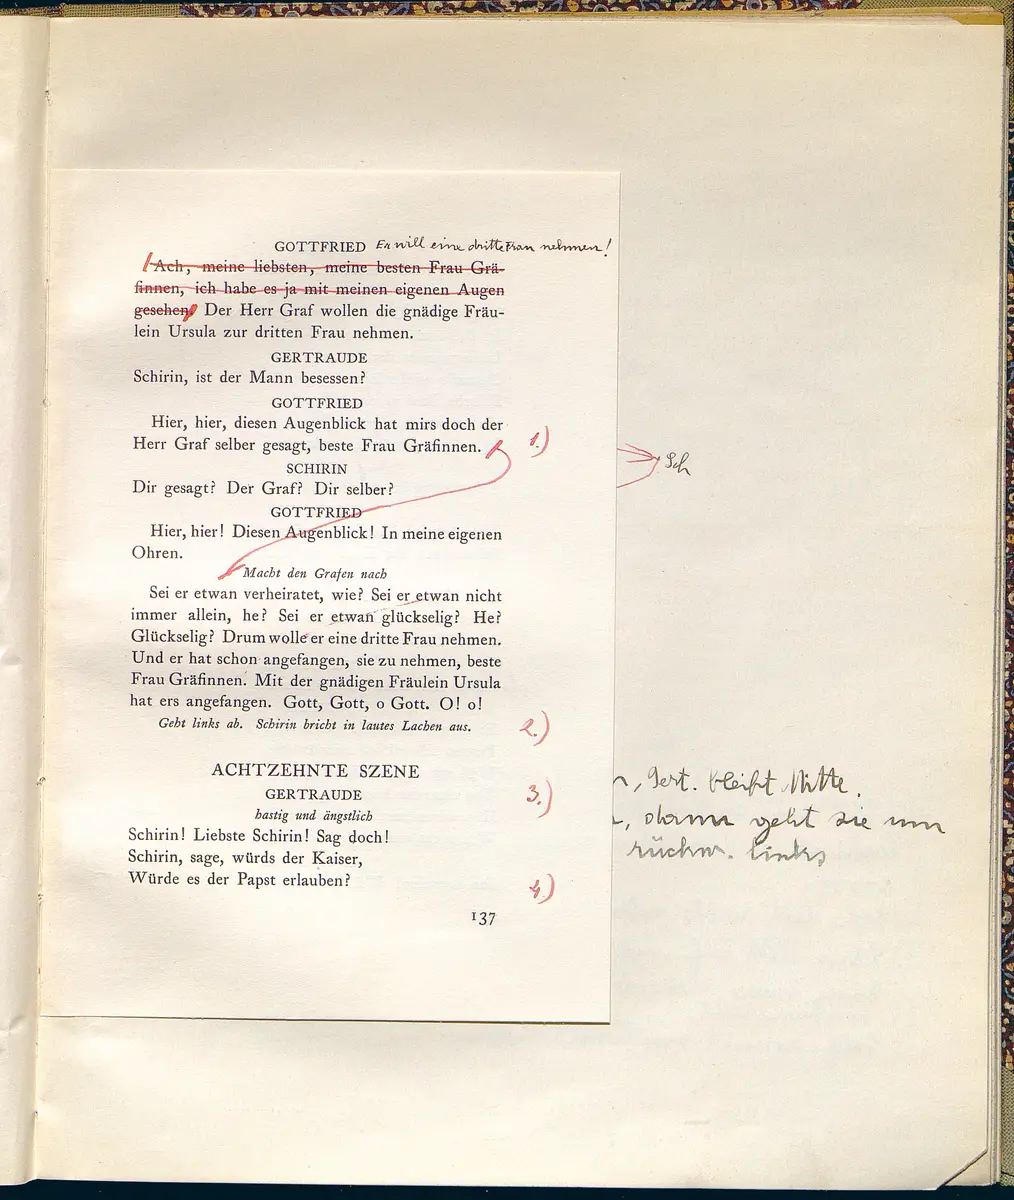 GOTTFRIED Er will eine dritte Frau nehmen!
Ach, meine liebsten, meine besten Frau Grä-
finnen, ich habe es ja mit meinen eigenen Augen
gesehen. Der Herr Graf wollen die gnädige Fräu-
lein Ursula zur dritten Frau nehmen.
GERTRAUDE
Schirin, ist der Mann besessen?
GOTTFRIED
Hier, hier, diesen Augenblick hat mirs doch der
Herr Graf selber gesagt, beste Frau Gräfinnen.
1.)
Sch
SCHIRIN
Dir gesagt? Der Graf? Dir selber?
GOTTFRIED
Hier, hier! Diesen Augenblick! In meine eigenen
Ohren.
Macht den Grafen nach
Sei er etwan verheiratet, wie? Sei er etwan nicht
immer allein, he? Sei er etwan glückselig? He?
Glückselig? Drum wolle er eine dritte Frau nehmen.
Und er hat schon angefangen, sie zu nehmen, beste
Frau Gräfinnen. Mit der gnädigen Fräulein Ursula
hat ers angefangen. Gott, Gott, o Gott. O! o!
Geht links ab. Schirin bricht in lautes Lachen aus.
2.)
ACHTZEHNTE SZENE
GERTRAUDE
3.)
hastig und ängstlich
Schirin! Liebste Schirin! Sag doch!
Schirin, sage, würds der Kaiser,
Würde es der Papst erlauben?
4.)
137
, Gert. bleibt Mitte.
, dann geht sie um
rückw. links